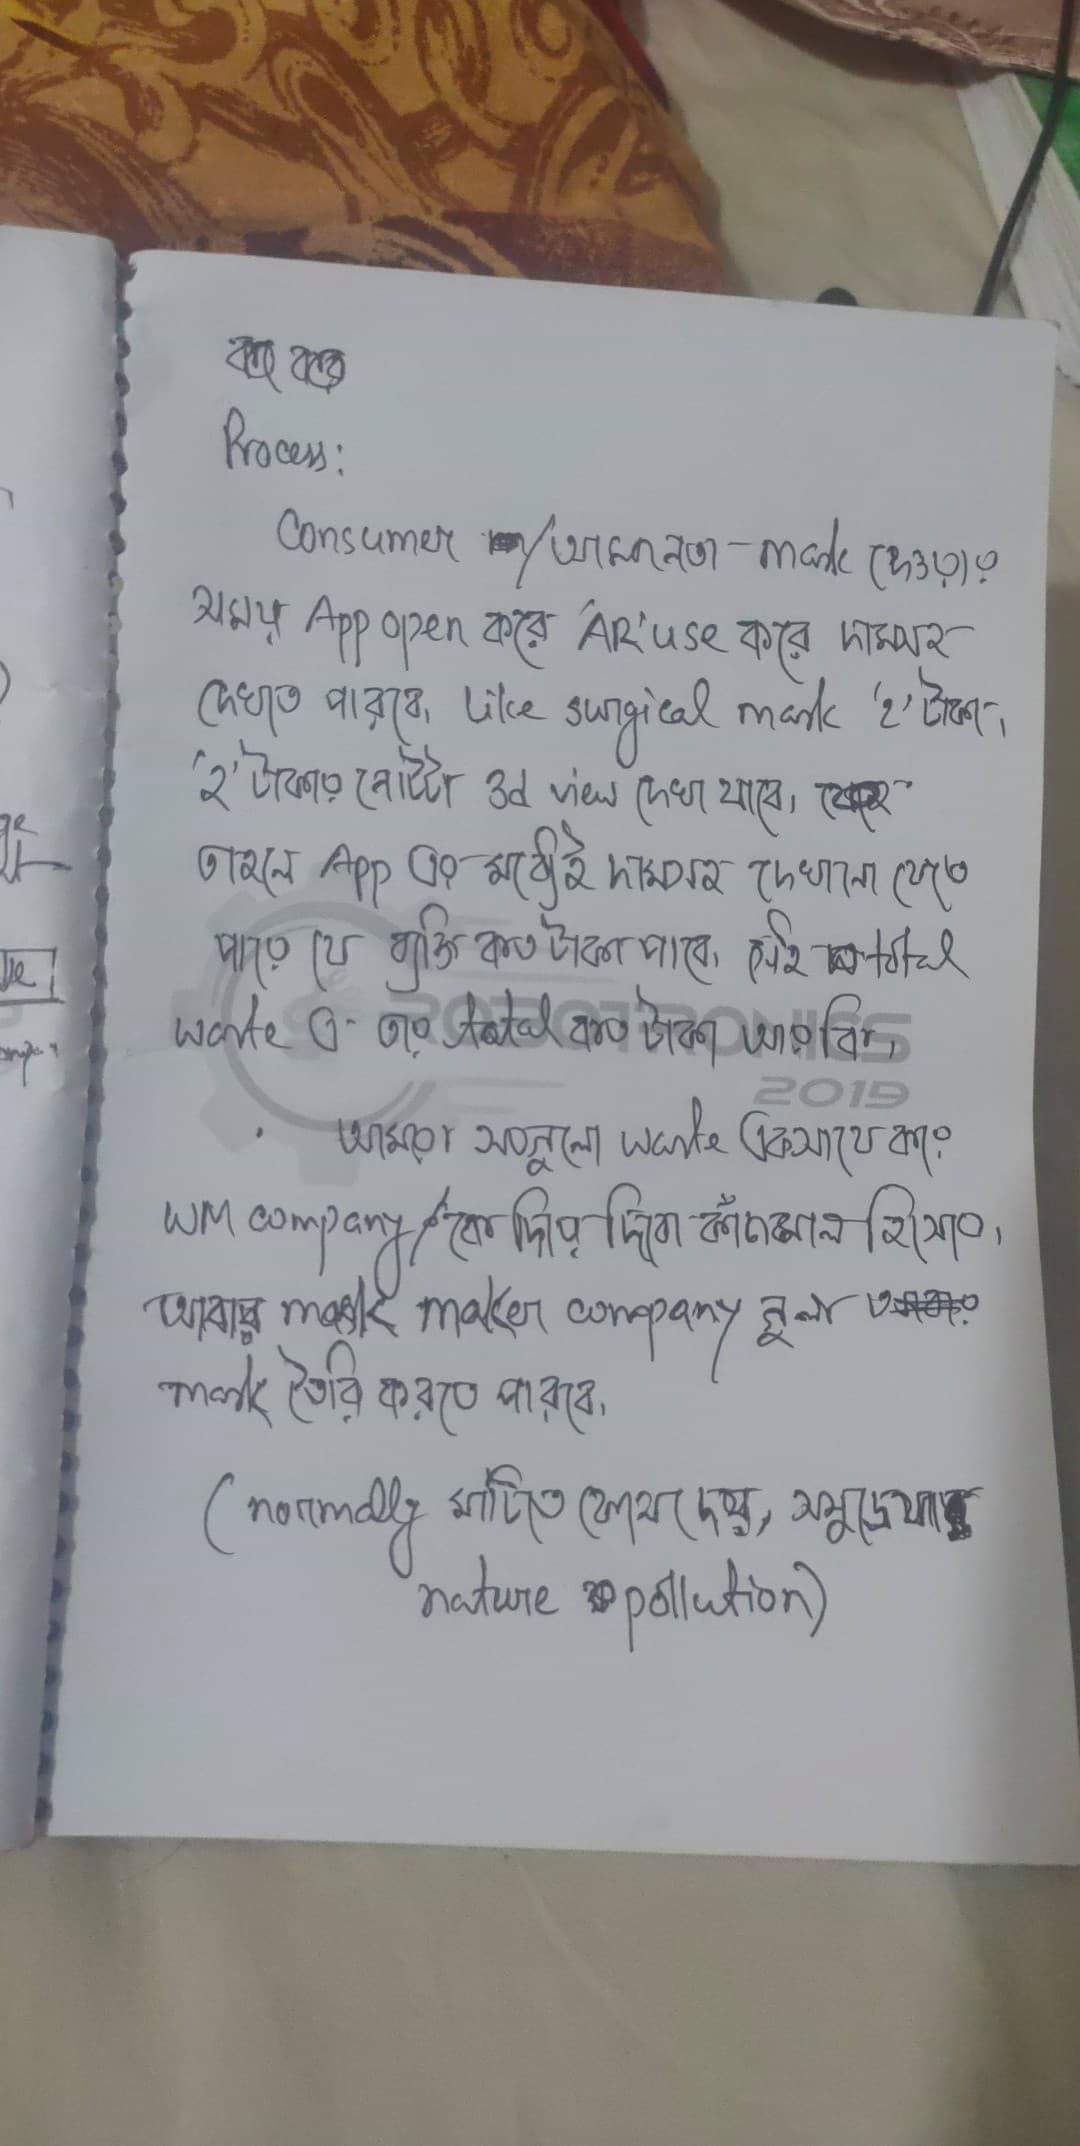 Process:
Consumer / জনতা - mask দেওয়ার
সময় App open করে 'AR' use করে দামসহ
দেখতে পারবে। Like surgical mask '২' টাকা,
'২' টাকার নোটটা 3d view দেখা যাবে।
তাহলে App এর মধ্যেই দামসহ দেখানো যেতে
পারে যে ব্যক্তি কত টাকা পাবে। total
waste এ তার total কত টাকা আসবে।
আমরা সবগুলো waste একসাথে করে
WM company কে দিয়ে দিবো কাঁচামাল হিসেবে,
আবার mask maker company গুলা
mask তৈরি করতে পারবে।
(normally মাটিতে ফেলে দেয়, সমুদ্রে যায়
nature pollution)
2019